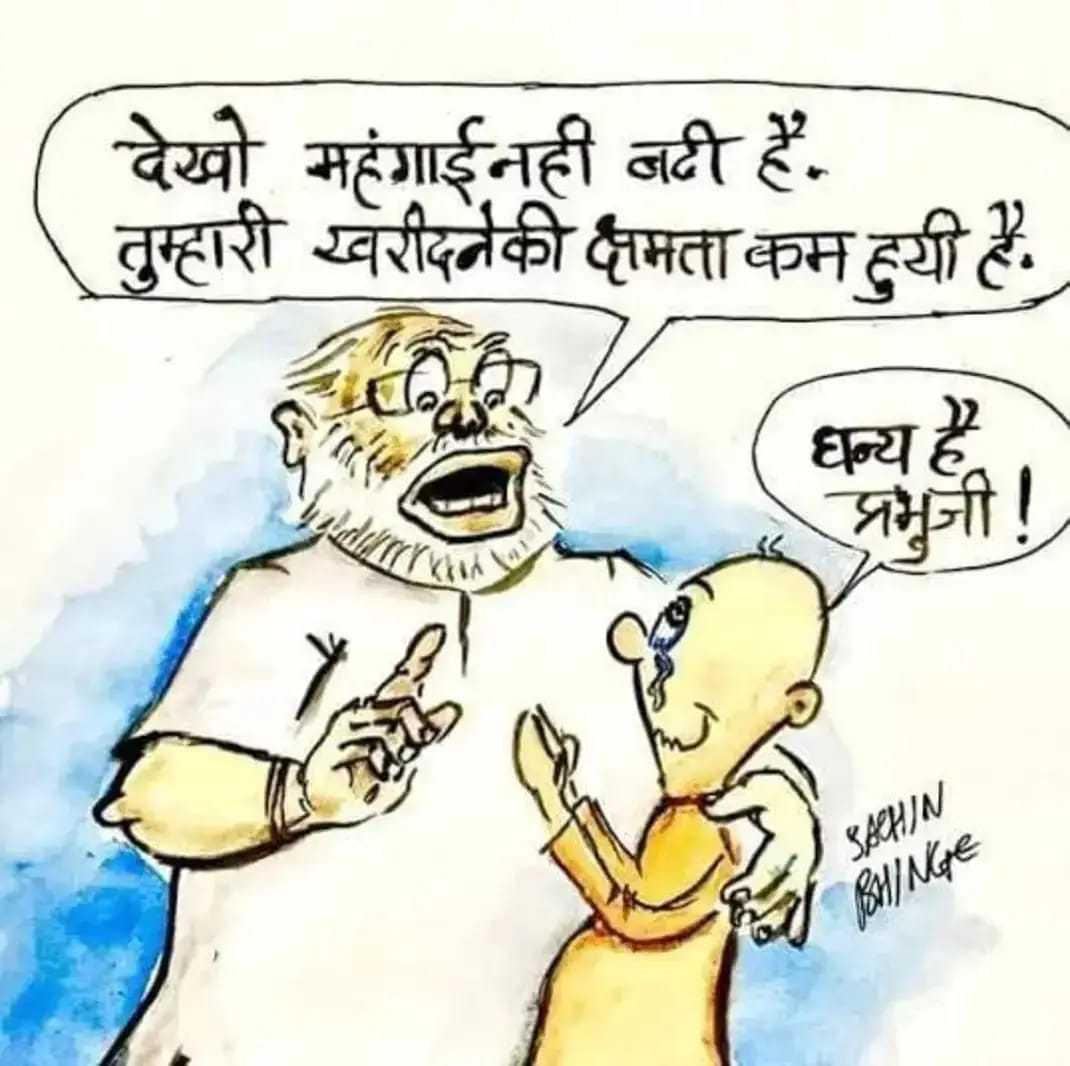 देखो महंगाई नही बढी हैं.
तुम्हारी खरीदनेकी क्षमता कम हुयी हैं.
धन्य हैं
प्रभुजी!
SACHIN
BHINGE